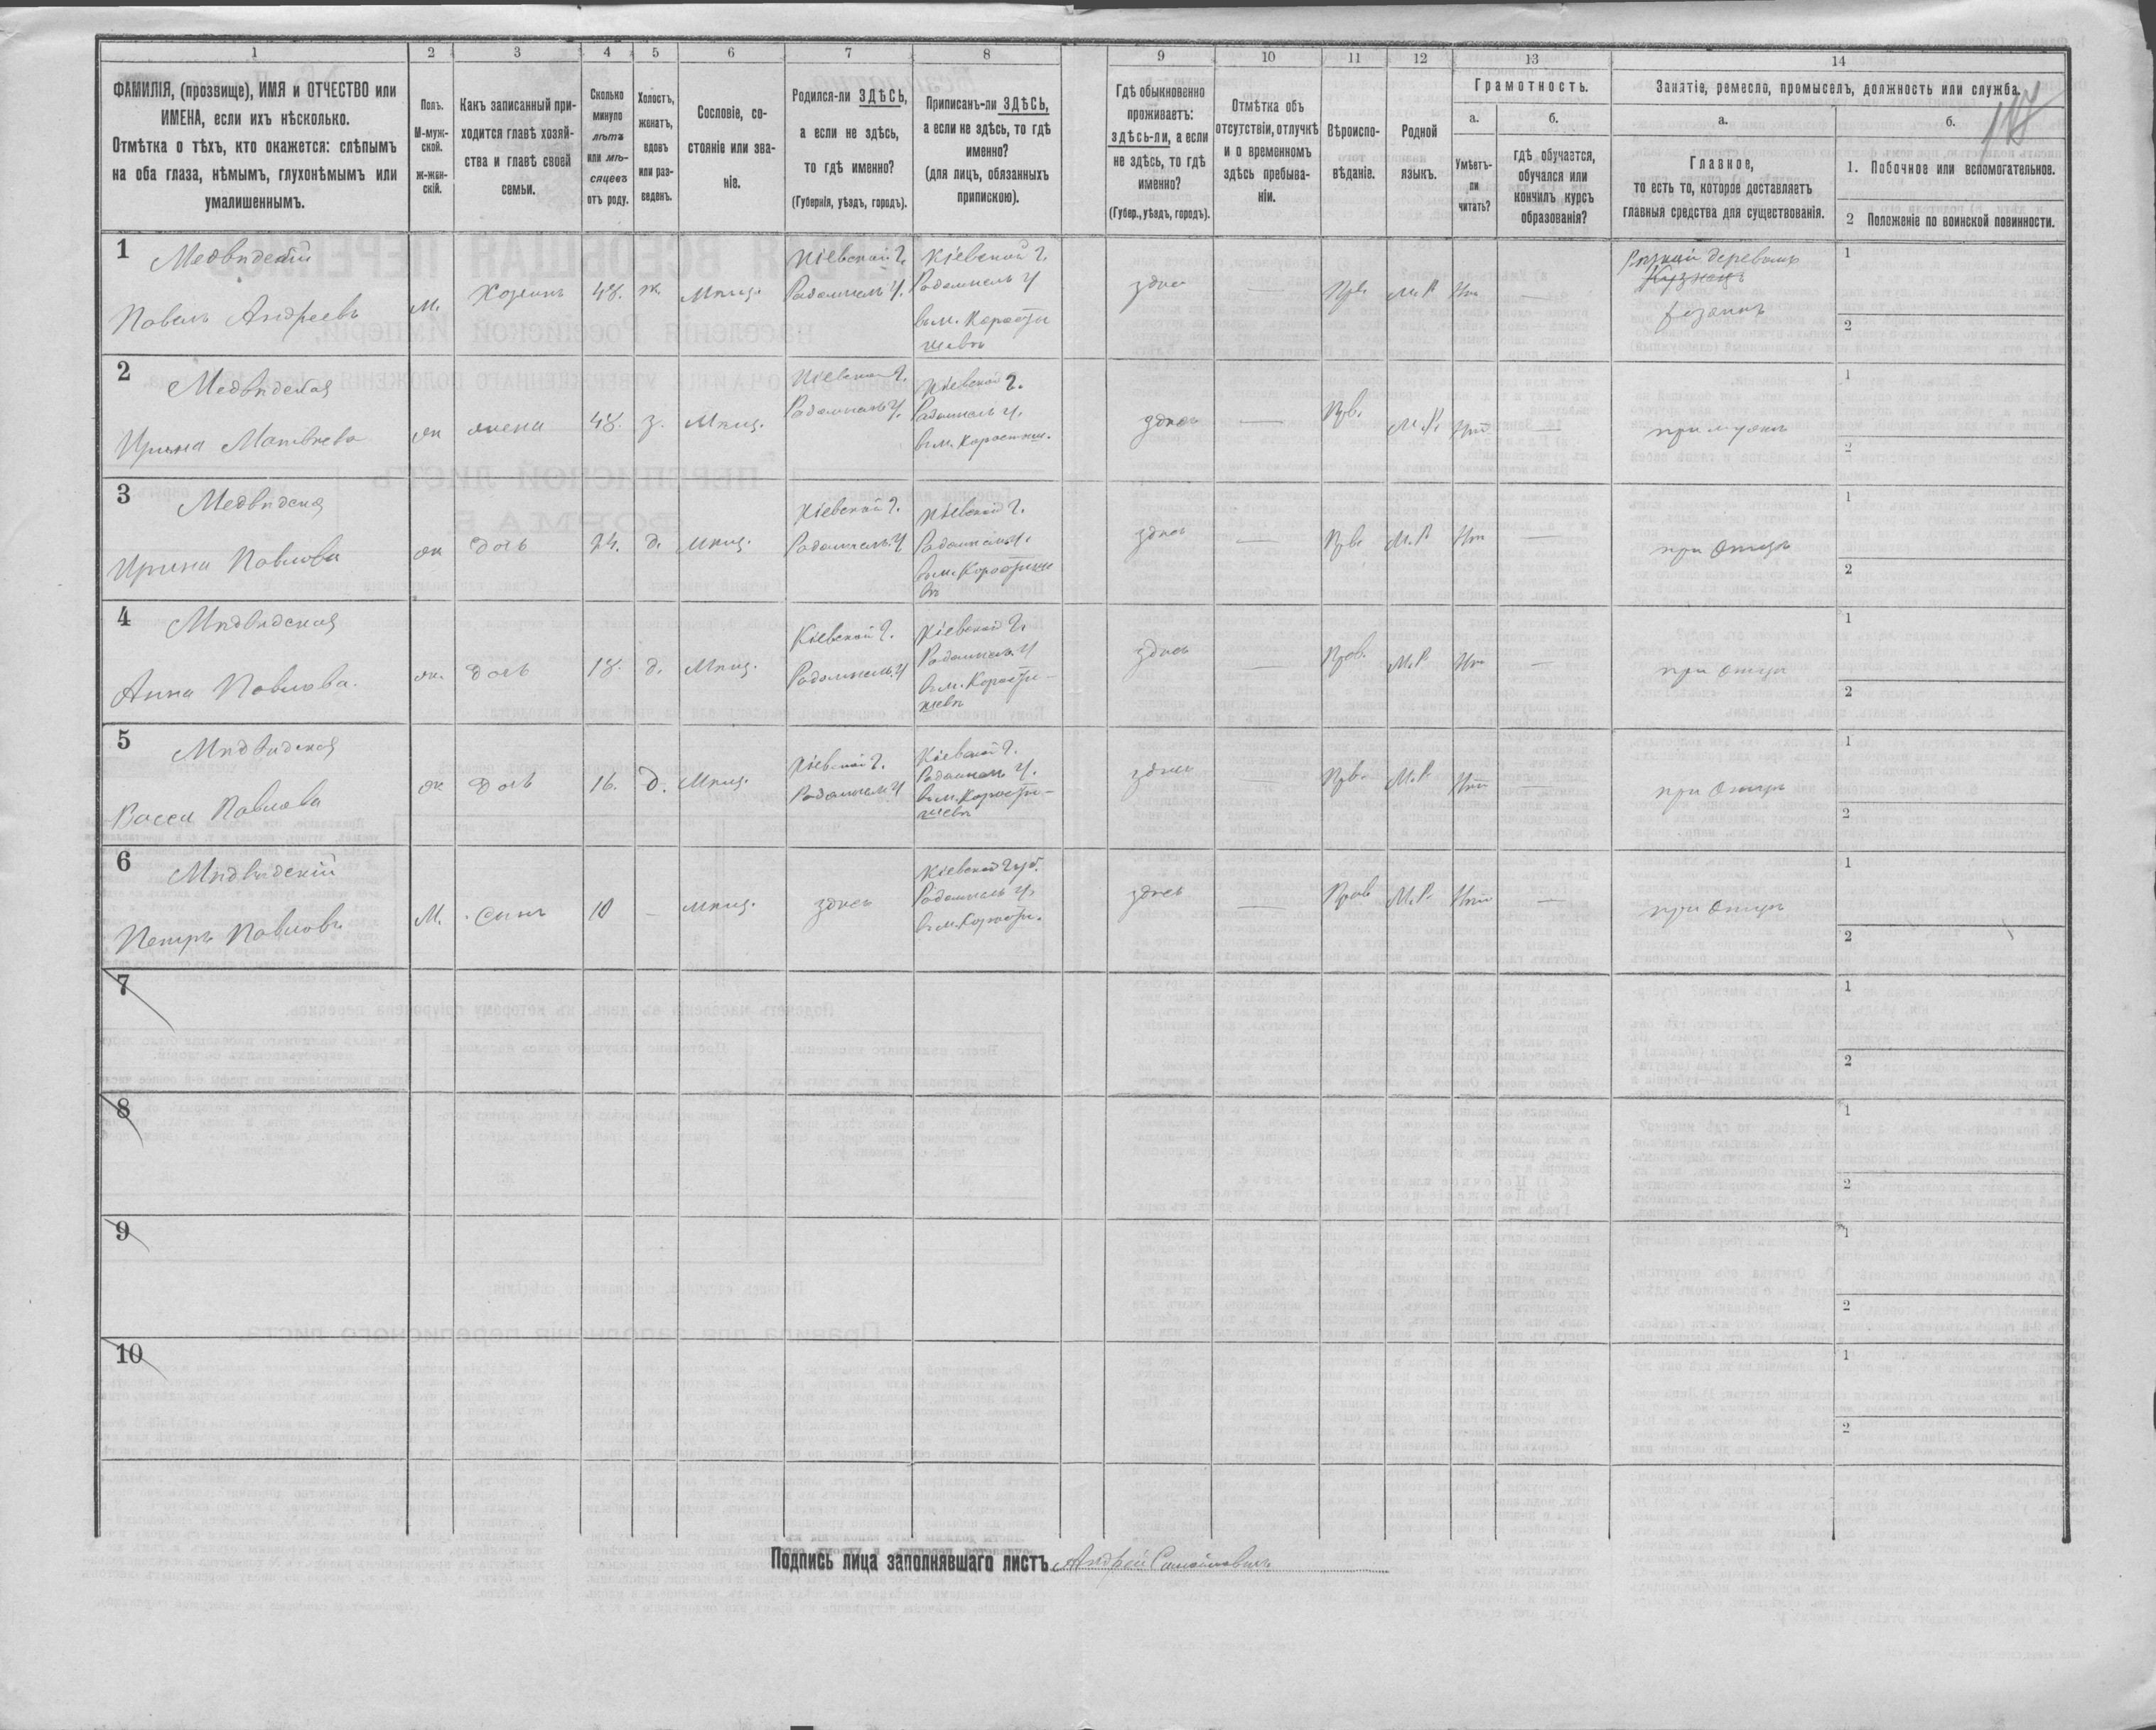 1 2 3 4 5 6 7 8 9 10 11 12 13 14
ФАМИЛІЯ, (прозвище), ИМЯ и ОТЧЕСТВО или
ИМЕНА, если ихъ нѣсколько.
Отмѣтка о тѣхъ, кто окажется: слѣпымъ
на оба глаза, нѣмымъ, глухонѣмымъ или
умалишеннымъ.
Полъ.
М-муж-
ской.
ж-жен-
скій.
Какъ записанный при-
ходится главѣ хозяй-
ства и главѣ своей
семьи.
Сколько
минуло
лѣтъ
или мѣ-
сяцевъ
отъ роду.
Холостъ,
женатъ,
вдовъ
или раз-
веденъ.
Сословіе, со-
стояніе или зва-
ніе.
Родился-ли ЗДѢСЬ,
а если не здѣсь,
то гдѣ именно?
(Губернія, уѣздъ, городъ).
Приписанъ-ли ЗДѢСЬ,
а если не здѣсь, то гдѣ
именно?
(для лицъ, обязанныхъ
припискою).
Гдѣ обыкновенно
проживаетъ:
здѣсь-ли, а если
не здѣсь, то гдѣ
именно?
(Губер., уѣздъ, городъ).
Отмѣтка объ
отсутствіи, отлучкѣ
и о временномъ
здѣсь пребыва-
ніи.
Вѣроиспо-
вѣданіе.
Родной
языкъ.
Грамотность.
а.
Умѣетъ-
ли
читать?
б.
гдѣ обучается,
обучался или
кончилъ курсъ
образованія?
Занятіе, ремесло, промыселъ, должность или служба.
а.
Главное,
то есть то, которое доставляетъ
главныя средства для существованія.
б.
1. Побочное или вспомогательное.
2 Положеніе по воинской повинности.
1 Медвидскій
Павелъ Андреевъ
М. Хозяинъ 48. ж. Мѣщ.
Кіевской Г.
Радомысль У.
Кіевской Г.
Радомысль У
въ м. Коросты
шевѣ
здѣсь — Прв. М.Р. Нѣт —
деревомъ
1
2
2 Медвидская
Ирина Матвѣева
ж жена 48. з. Мѣщ.
Кіевской Г.
Радомысль У.
Кіевской Г.
Радомысль У.
въ м. Коростыш.
здѣсь — Прв. М.Р. Нѣт —
при мужѣ
1
2
3 Медвидская
Ирина Павлова
ж дочь 24. д. Мѣщ.
Кіевской Г.
Радомысль У
Кіевской Г.
Радомысль У.
въ м. Коростыше
вѣ
здѣсь — Прв. М.Р. Нѣт —
при отцѣ
1
2
4 Медвидская
Анна Павлова.
ж. дочь 18. д. Мѣщ.
Кіевской Г.
Радомысль У
Кіевской Г.
Радомысль У
въ м. Коросты-
шевѣ
здѣсь — Прв. М.Р. Нѣт —
при отцѣ
1
2
5 Медвидская
Васса Павлова
ж дочь 16. д. Мѣщ.
Кіевской Г.
Радомысль У
Кіевской Г.
Радомысль У.
въ м. Коросты-
шевѣ
здѣсь — Прв. М.Р. Нѣт —
при отцѣ
1
2
6 Медвидскій
Петръ Павловъ
М. сынъ 10 — Мѣщ. здѣсь
Кіевской Губ.
Радомысль У.
въ м. Коросты.
здѣсь — Прав М.Р. Нѣт —
при отцѣ
1
2
7
1
2
8
1
2
9
1
2
10
1
2
Подпись лица заполнявшаго листъ Андрей